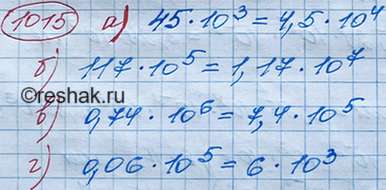 1015 а) 45·10³ = 4,5·10⁴
б) 117·10⁵ = 1,17·10⁷
©reshak.ru
в) 0,74·10⁶ = 7,4·10⁵
г) 0,06·10⁵ = 6·10³